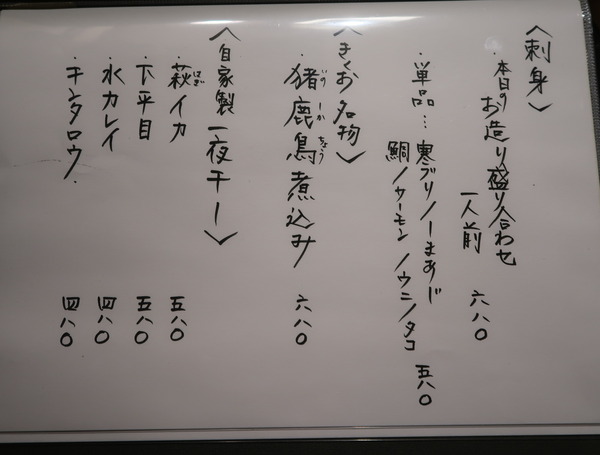 〈刺身〉
・本日のお造り盛り合わせ
一人前 六八〇
・単品… 寒ブリ/しまあじ
鯛/サーモン/ウニ/タコ 五八〇
〈きくお名物〉
猪鹿鳥煮込み 六八〇
いのしかちょう
〈自家製 一夜干し〉
・萩イカ 五八〇
はぎ
・下平目 五八〇
・水カレイ 四八〇
・キンタロウ 四八〇